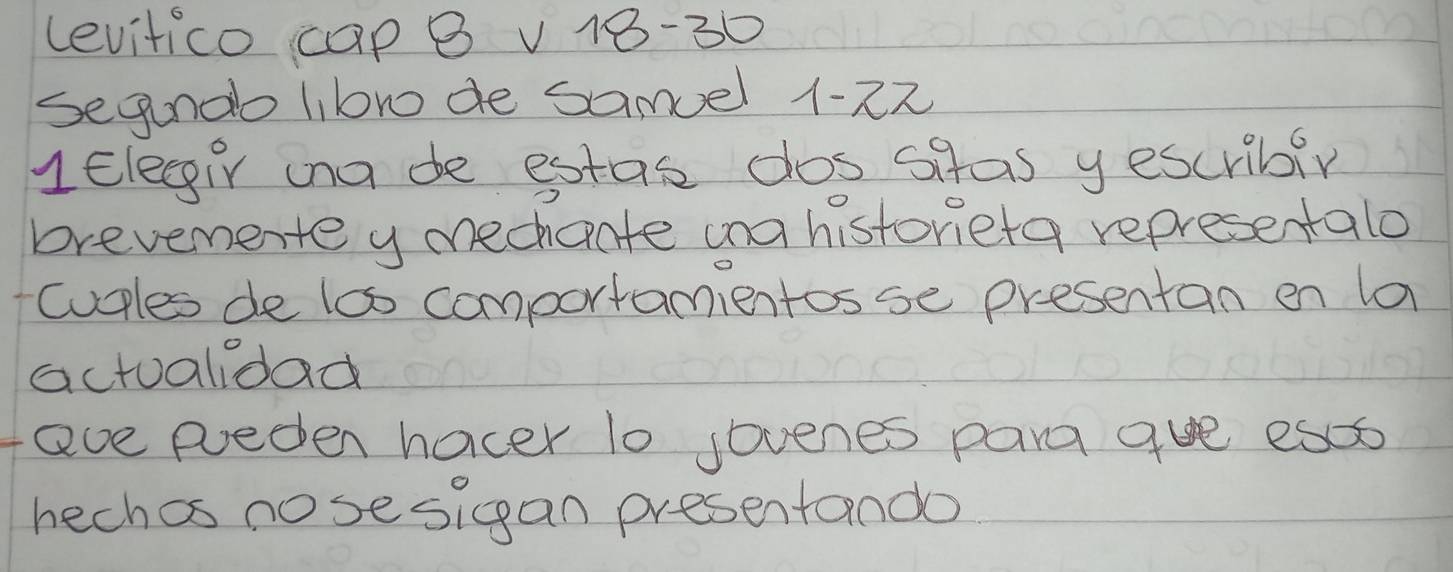 Levitico cap 8 v 18-30
segundo libro de Samuel 1-22
1 Elegir una de estas dos sitas y escribir
brevemente y mediante una historieta representalo
-Cuales de los comportamientos se presentan en la
actualidad
-Que pueden hacer lo jovenes para que esos
hechos no se sigan presentando